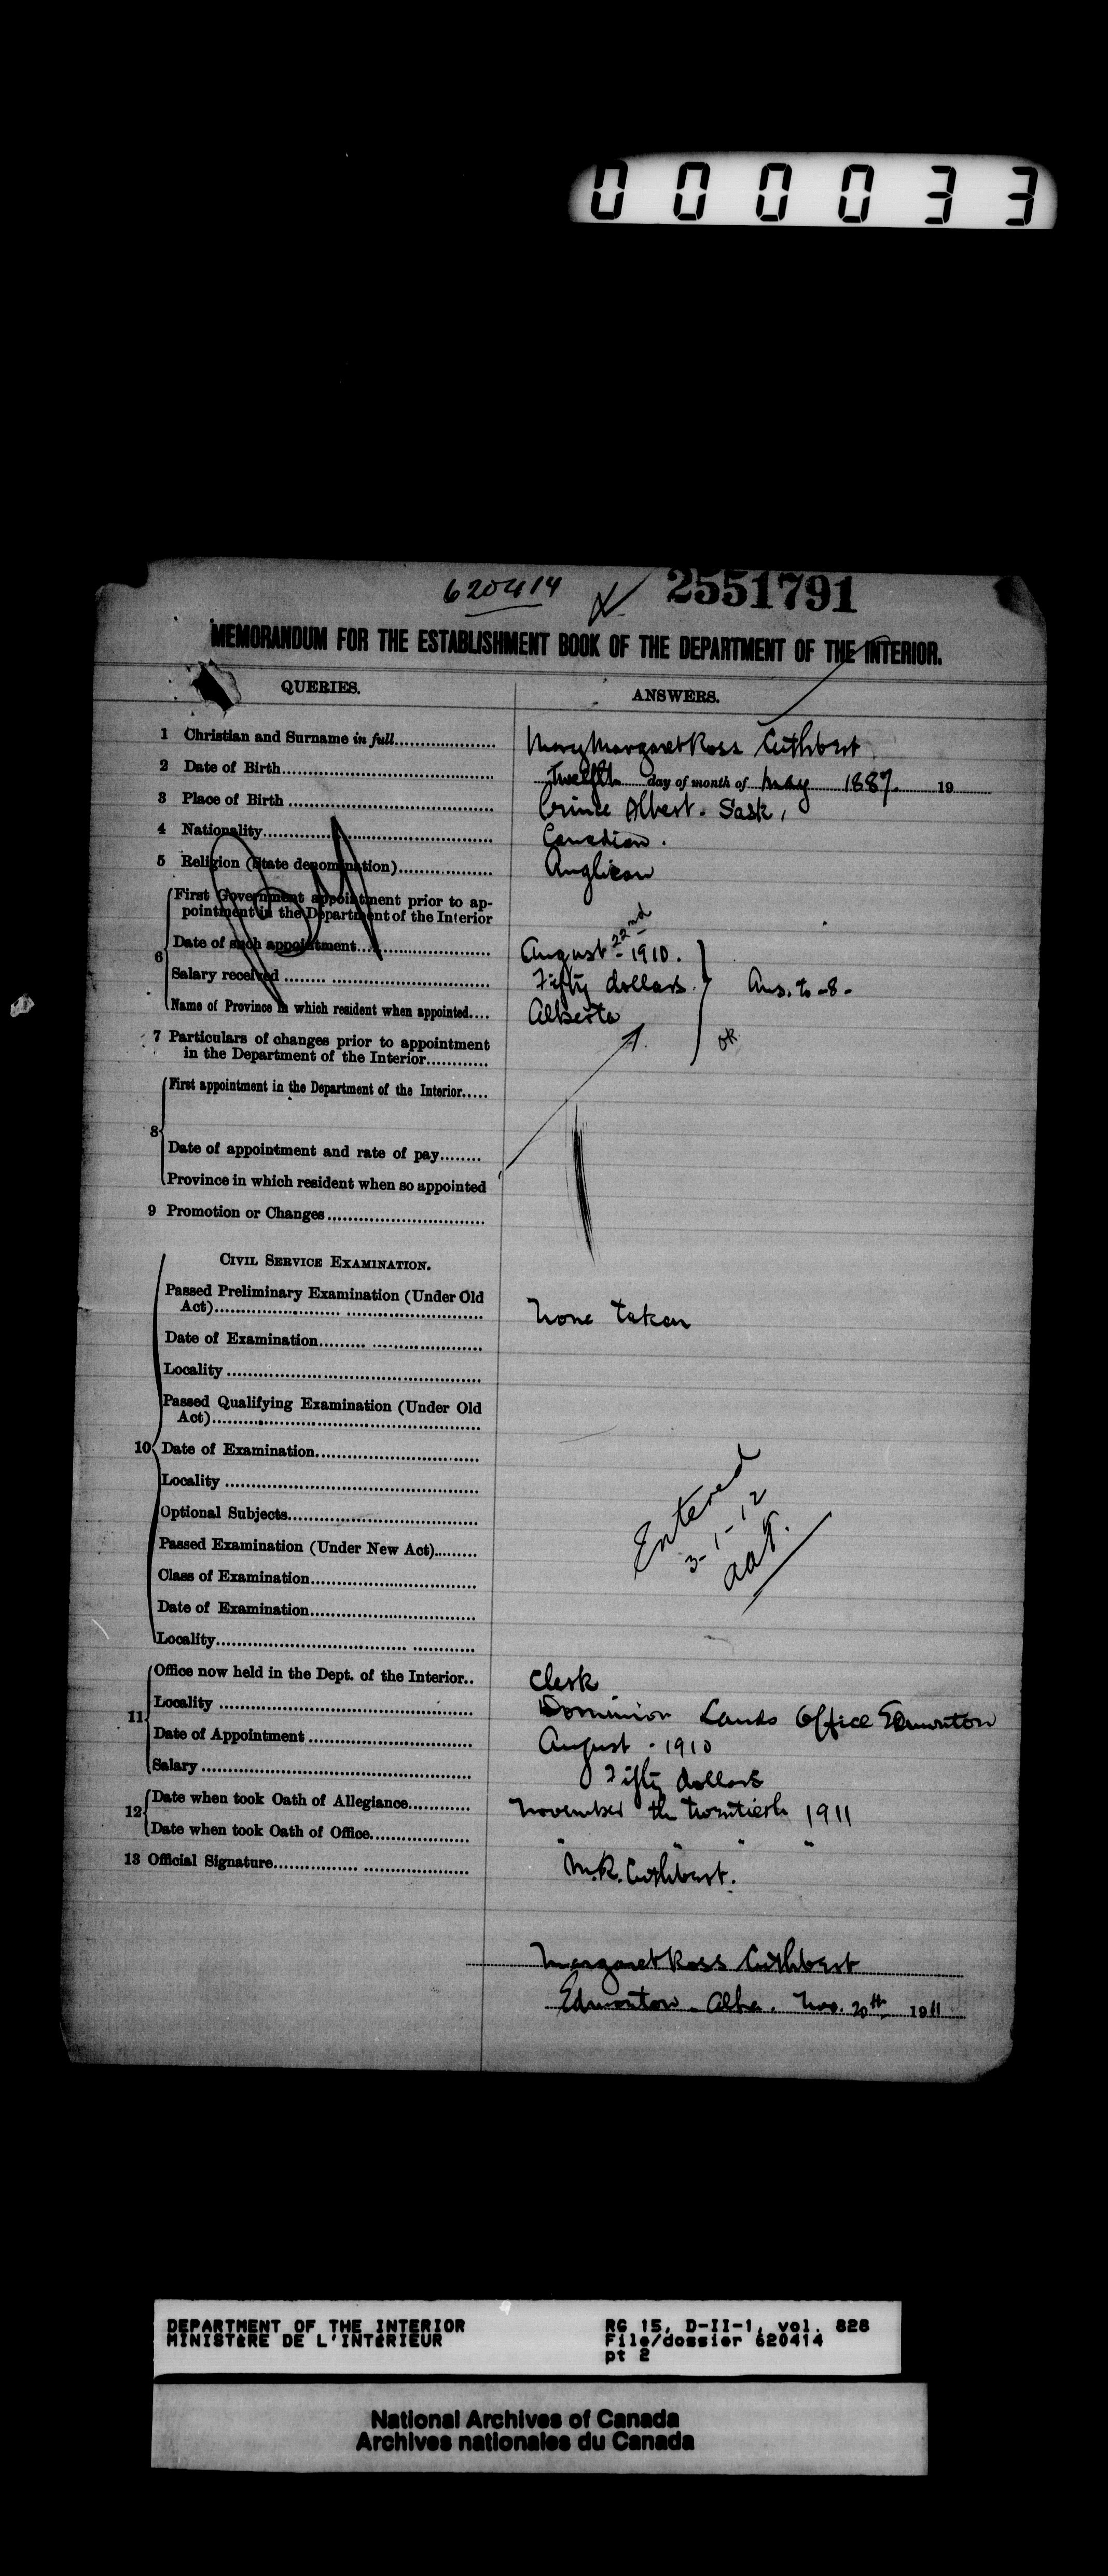 000033
620414 2551791
MEMORANDUM FOR THE ESTABLISHMENT BOOK OF THE DEPARTMENT OF THE INTERIOR.
QUERIES. ANSWERS.
1 Christian and Surname in full.................... Mary Margaret Ross Cuthbert
2 Date of Birth.................... Twelfth day of month of May 1887. 19
3 Place of Birth .................... Prince Albert. Sask,
4 Nationality.................... Canadian.
5 Religion (State denomination).................... Anglican
6 First Government appointment prior to ap-
pointment in the Department of the Interior
Date of such appointment.................... August 22nd - 1910.
Salary received .................... Fifty dollars. Ans. to -8-
Name of Province in which resident when appointed.... Alberta
7 Particulars of changes prior to appointment OK
in the Department of the Interior............
First appointment in the Department of the Interior.....
8
Date of appointment and rate of pay........
Province in which resident when so appointed
9 Promotion or Changes....................
CIVIL SERVICE EXAMINATION.
Passed Preliminary Examination (Under Old
Act).................... None taken
Date of Examination....................
Locality ....................
Passed Qualifying Examination (Under Old
Act)....................
10 Date of Examination....................
Locality ....................
Optional Subjects.................... Entered
Passed Examination (Under New Act)......... 3-1-12
Class of Examination....................
Date of Examination....................
Locality....................
Office now held in the Dept. of the Interior.. Clerk
11 Locality .................... Dominion Lands Office Edmonton
Date of Appointment .................... August - 1910
Salary .................... Fifty dollars
12 Date when took Oath of Allegiance............ November the twentieth 1911
Date when took Oath of Office.................... " " " "
13 Official Signature.................... M.R. Cuthbert.
Margaret Ross Cuthbert
Edmonton - Alba. Nov. 20th 1911
DEPARTMENT OF THE INTERIOR RG 15, D-II-1, vol. 828
MINISTÈRE DE L'INTÉRIEUR File/dossier 620414
pt 2
National Archives of Canada
Archives nationales du Canada